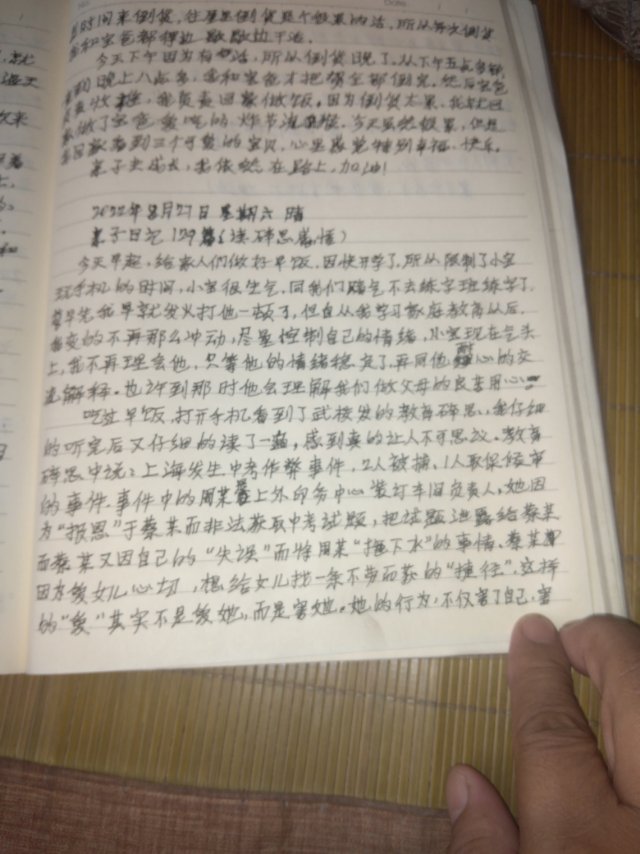 时间来倒货,仓库里倒货是个很累的活,所以每次倒货
我和宝爸都得边歇歇边干活.
今天下午因为有活,所以倒货晚了,从下午五点多钟
到晚上八点多,我和宝爸才把货全部倒完.然后宝爸
负责收摊,我负责回家做饭.因为倒货太累,我就
做了宝爸爱吃的.今天虽然很累,但是
回家看到三个可爱的宝贝,心里感觉特别幸福、快乐.
亲子共成长,我依然在路上,加油!
2022年8月27日 星期六 晴
亲子日记129篇(读碎思感悟)
今天早起,给家人们做好早饭.因快开学了,所以限制了小宝
玩手机的时间,小宝很生气,同我们赌气不去练字班练字了.
要早先我早就发火打他一顿了,但自从我学习家庭教育以后,
我变的不再那么冲动,尽量控制自己的情绪,小宝现在气头
上,我不再理会他,只等他的情绪稳定了,再同他耐心的交
流解释.也许到那时他会理解我们做父母的良苦用心。
吃过早饭,打开手机看到了武校发的教育碎思,我仔细
的听完后又仔细的读了一篇,感到真的让人不可思议.教育
碎思中说:上海发生中考作弊事件,2人被捕、1人取保候审
的事件.事件中的周某是上外印务中心装订车间负责人,她因
为“报恩”于蔡某而非法获取中考试题,把试题泄露给蔡某
而蔡某又因自己的“失误”而将周某“拖下水”的事情、蔡某
因为爱女儿心切,想给女儿找一条不劳而获的“捷径”.这样
的“爱”其实不是爱她,而是害她。她的行为,不仅害了自己,害